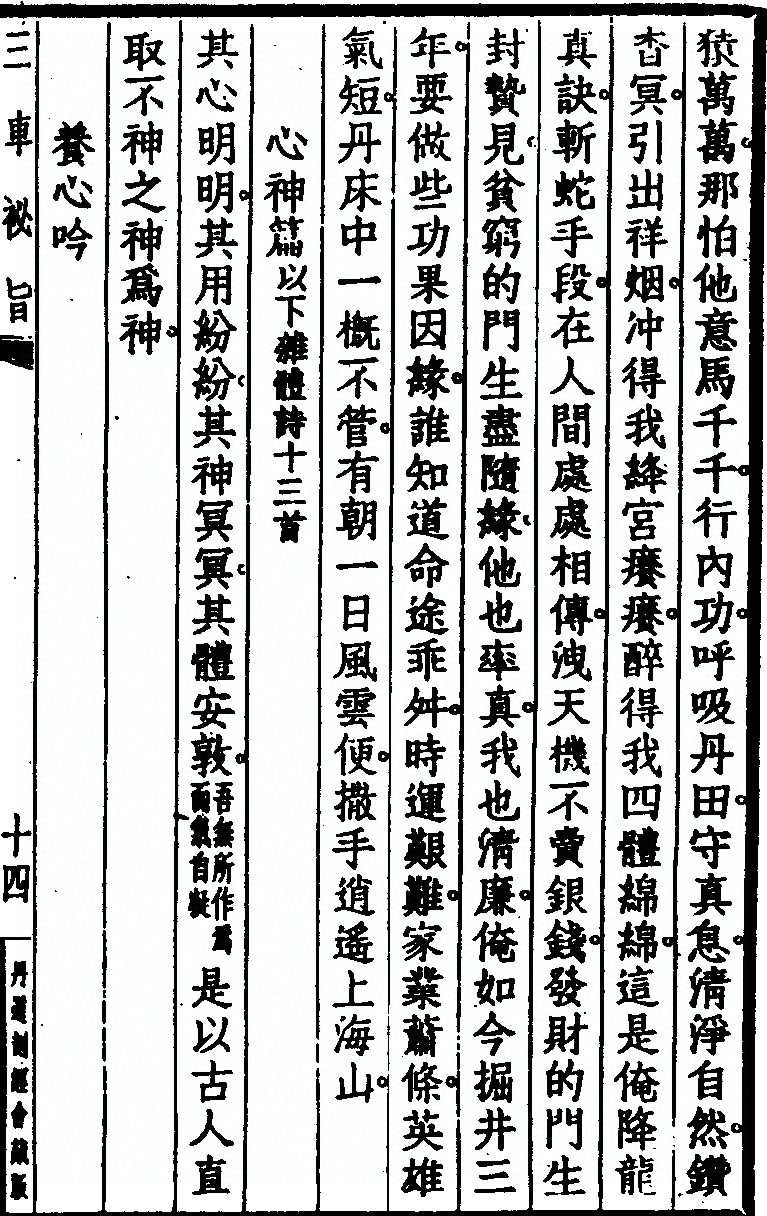 猿萬萬那怕他意馬千千行內功呼吸丹田守真息清淨自然鑽
杳冥引出祥烟冲得我絳宮癢癢醉得我四體綿綿這是俺降龍
真訣斬蛇手段在人間處處相傳洩天機不費銀錢發財的門生
封贄見貧窮的門生盡隨緣他也率真我也清廉俺如今掘井三
年要做些功果因緣誰知道命途乖舛時運艱難家業蕭條英雄
氣短丹床中一概不管有朝一日風雲便撒手逍遙上海山
心神篇以下雜體詩十三首
其心明明其用紛紛其神冥冥其體安敦吾無所作為而氣自凝是以古人直
取不神之神為神
養心吟
三車祕旨
十四
丹道刻經會藏版